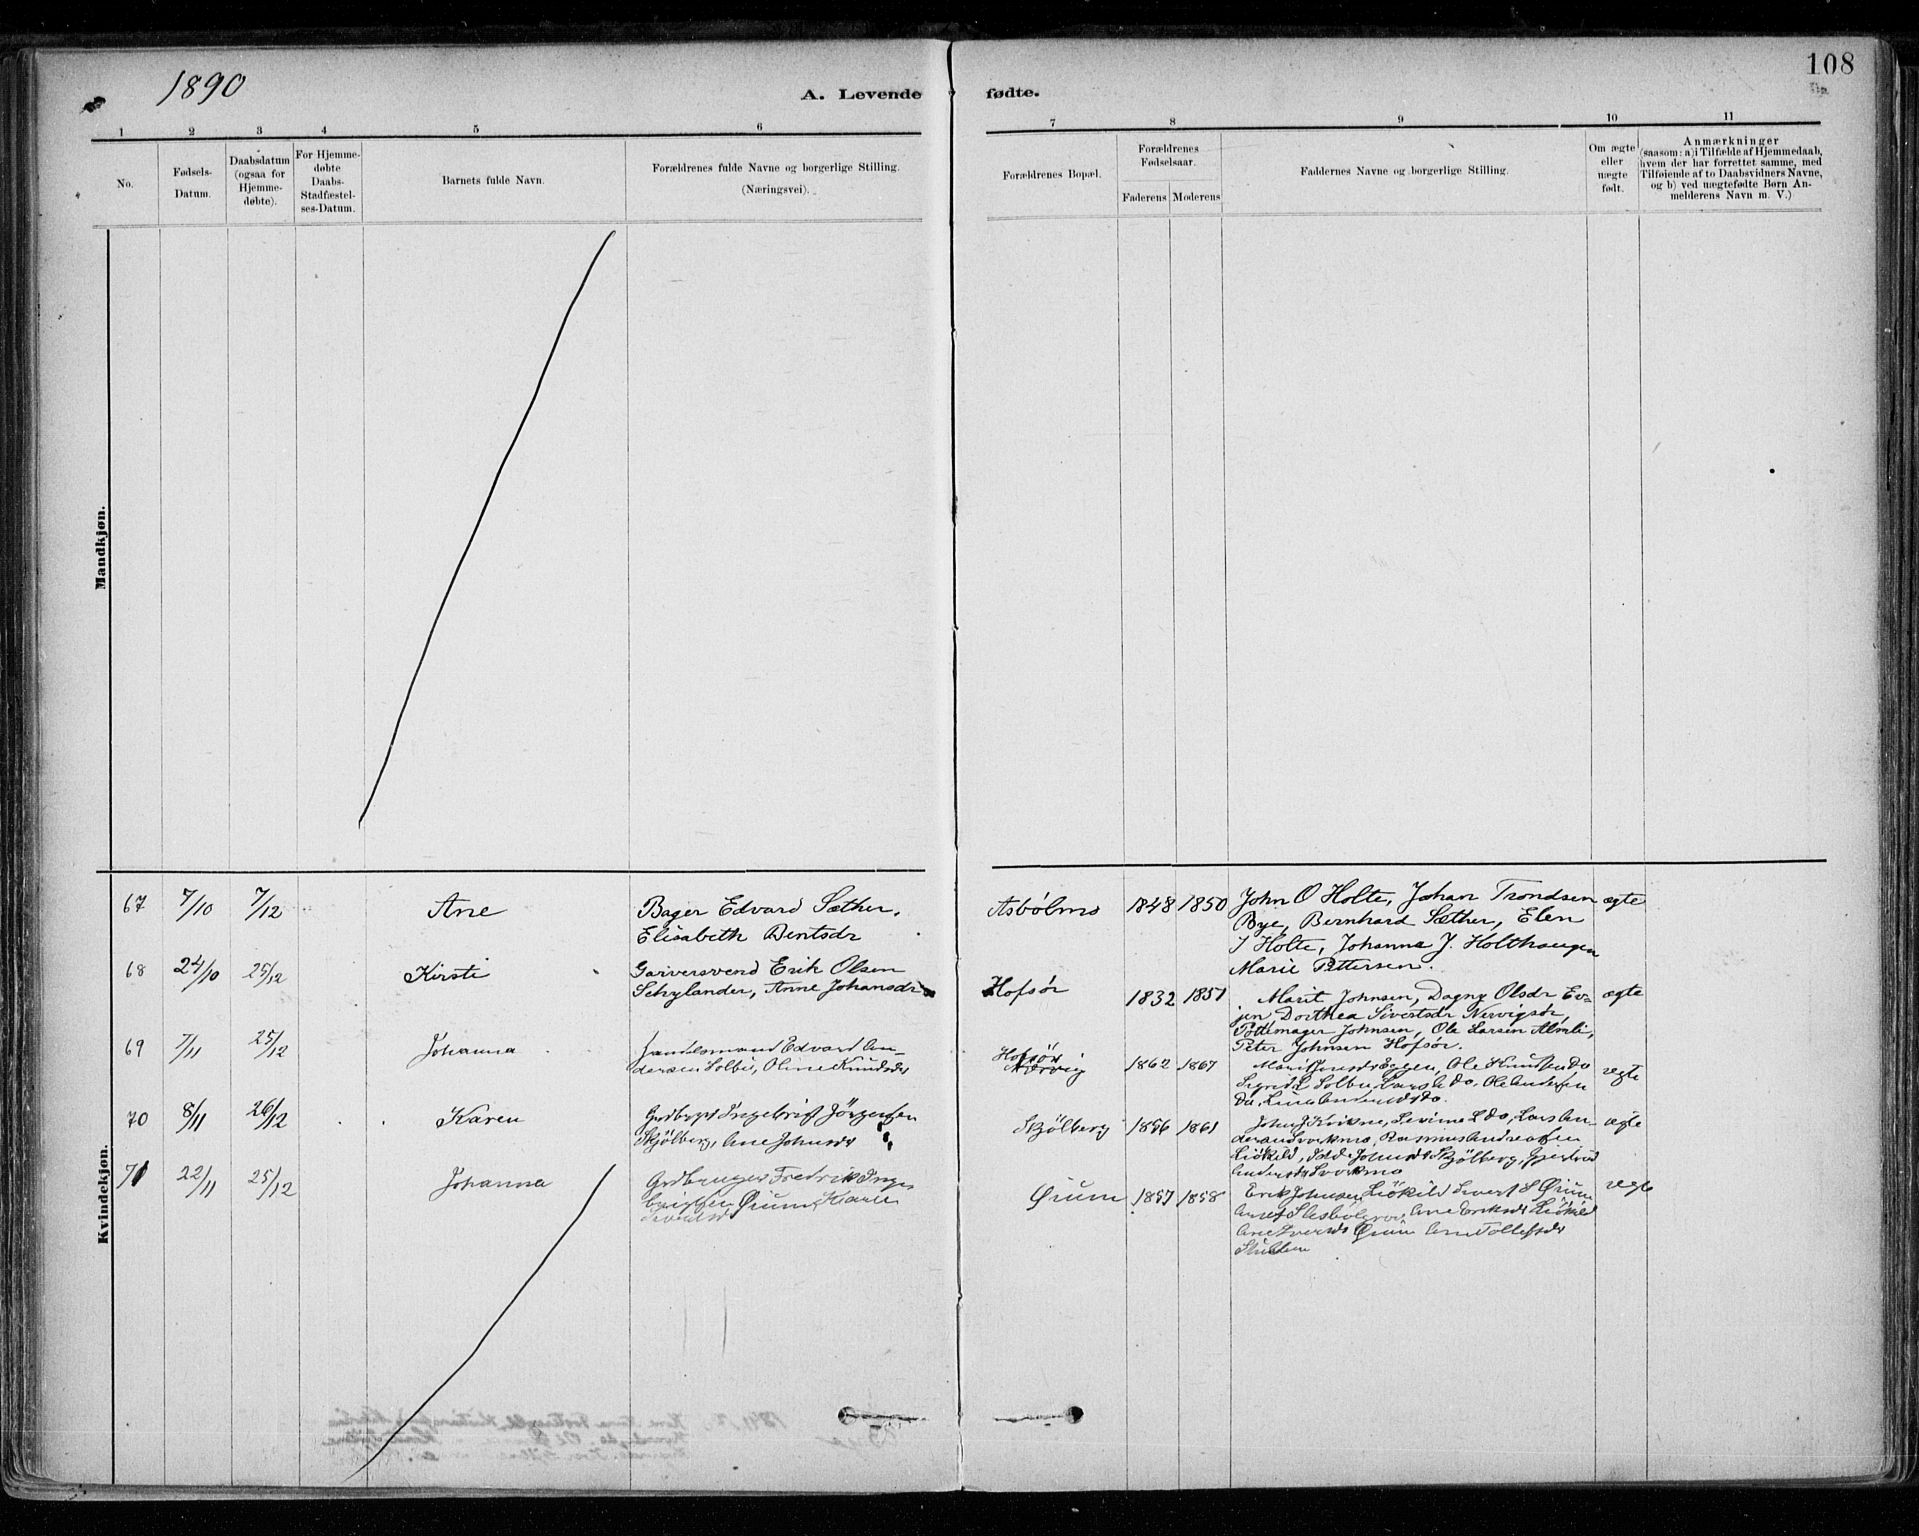 1890
108
A. Levende fødte.
1 2 3 4 5 6 7 8 9 10 11
No.
Fødsels-
Datum.
Daabsdatum
(ogsaa for
Hjemme-
døbte).
For Hjemme-
døbte
Daabs-
Stadfæstel-
ses-Datum.
Barnets fulde Navn.
Forældrenes fulde Navne og borgerlige Stilling.
(Næringsvei).
Forældrenes Bopæl.
Forældrenes
Fødselsaar.
Faderens Moderens
Faddernes Navne og borgerlige Stilling.
Om ægte
eller
uægte
født.
Anmærkninger
(saasom: a) i Tilfælde af Hjemmedaab,
hvem der har forrettet samme, med
Tilføiende af to Daabsvidners Navne,
og b) ved uægtefødte Børn An-
melderens Navn m. V.)
Mandkjøn.
Kvindekjøn.
67 7/10 7/12 Ane
Bager Edvard Sæther,
Elisabeth Bentsdr
Asbølmo 1848 1850
John O Holte, Johan Trondsen
Bye, Bernhard Sæther, Elen
J Holte, Johanna J. Holthaugen
Marie Pettersen.
ægte
68 24/10 25/12 Kirsti
Garversvend Erik Olsen
Schylander, Anne Johansdr
Hofsør 1832 1851
Marit Johnsen, Dagny Olsdr Ev-
jen, Dorthea Sivertsdr Nervigsør,
Pottemager Johnsen, Ole Larsen Almli,
Peter Johnsen Hofsør.
ægte
69 7/11 25/12 Johanna
Handelsmand Edvard An-
dersen Solbu, Oline Knudsdr
Hofsør
1862 1867
Ole Knudsen Do
Solbu Do. Ole Andersen
Do, Do.
ægte
70 8/11 26/12 Karen
Grdbrgr Ingebrigt Jörgensen
Skjölberg, Ane Johnsdr
Skjölberg 1856 1861
John J Do, Lars An-
Rasmus Andreasen
Liökild, Johnsdr Skjölberg,
ægte
71 22/11 25/12 Johanna
Grdbruger Fredrik Inge-
brigtsen Ørium, Marie
Sivertsdr
Ørium 1857 1858
Erik Johnsen Liökild Sivert S Ørium
Ane Eriksdr Liökild
Ane Sivertsdr Ørium Ane Tollefsdr
ægte